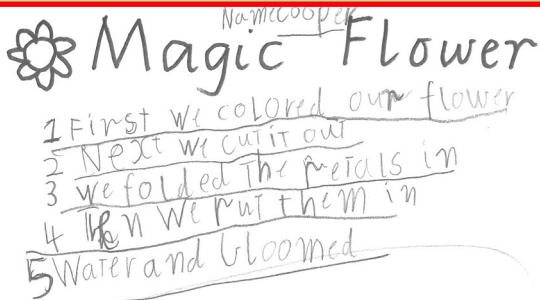 Name Cooper
Magic Flower
1 First we colored our flower
2 Next we cut it out
3 we folded the petals in
4 Then we put them in
5 Water and bloomed